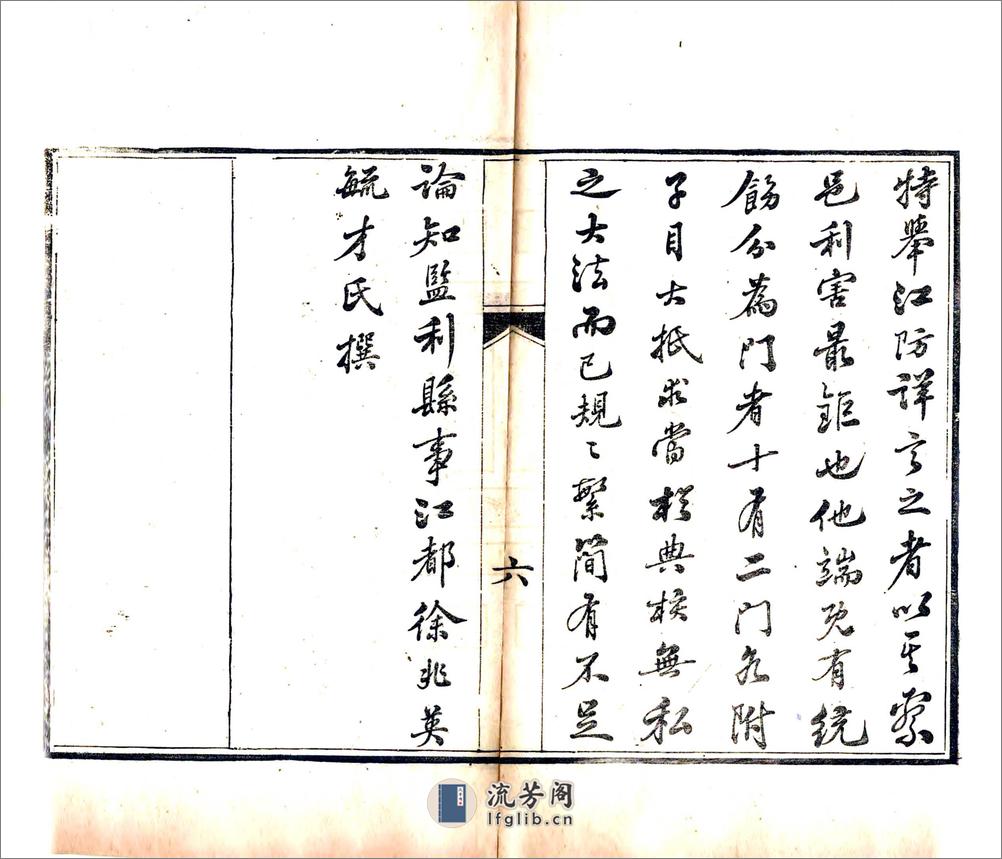 特舉江防詳言之者以其察
邑利害最鉅也他端既有統
飭分為門者十有二門各附
子目大抵求當於典核無私
之大法而已規〻繁簡有不足
六
論知監利縣事江都徐兆英
毓才氏撰
流芳阁
lfglib.cn